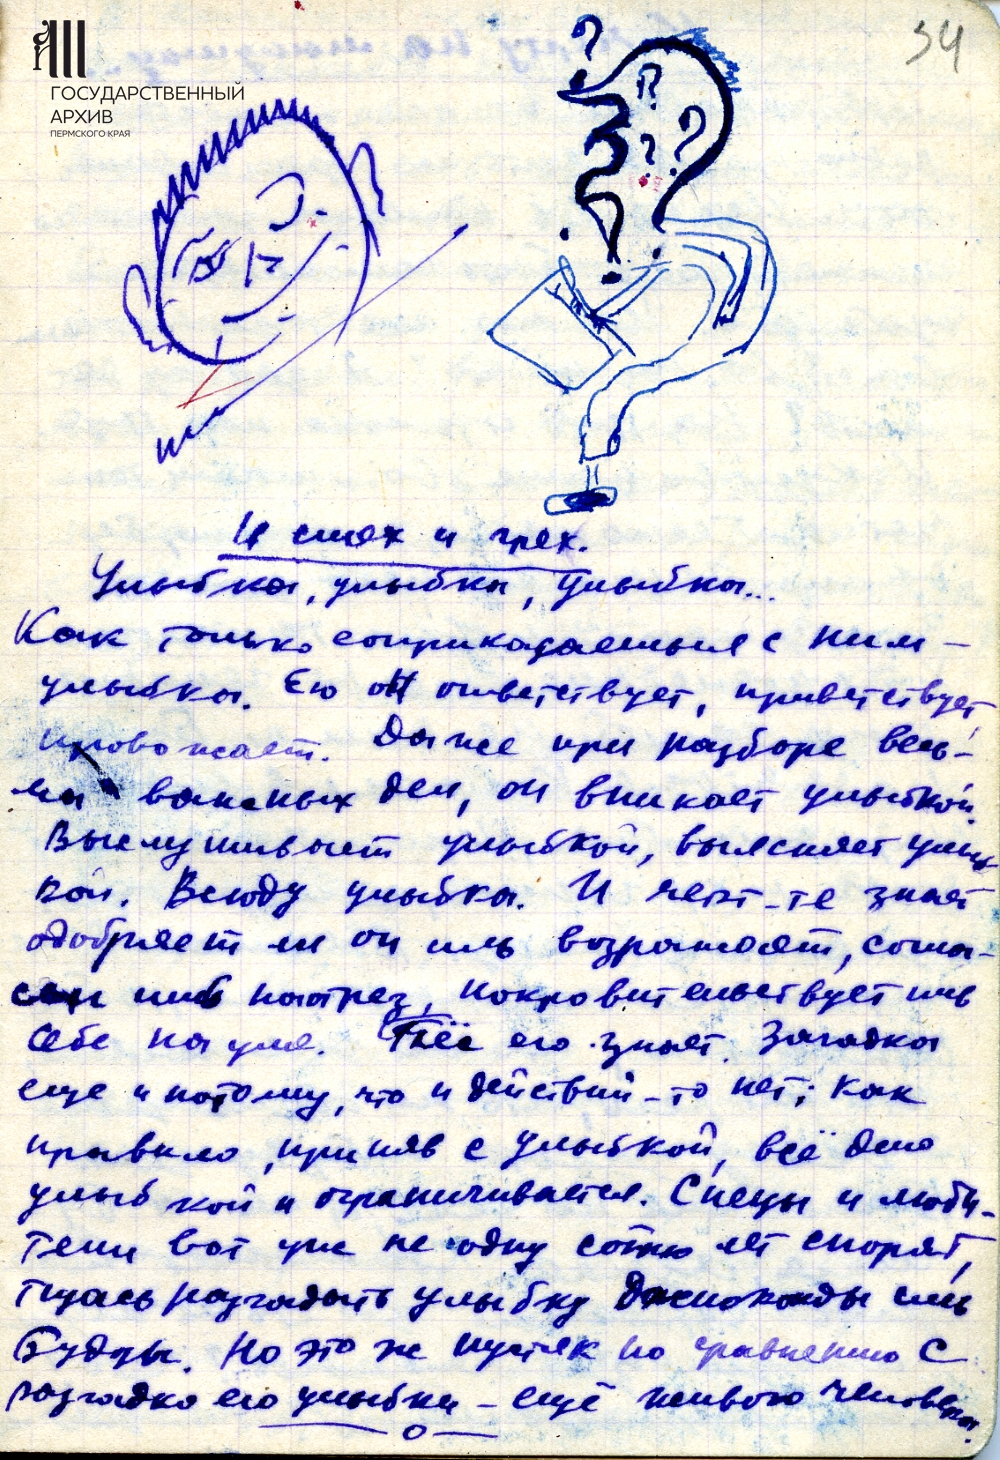 ГОСУДАРСТВЕННЫЙ
АРХИВ
ПЕРМСКОГО КРАЯ
34
И смех и грех.
Улыбка, улыбка, улыбка...
Как только соприкасаешься с ним –
улыбка. Ею он ответствует, приветствует
провожает. Даже при разборе весь-
ма важных дел, он вникает улыбкой.
Выслушивает улыбкой, выясняет улыб
кой. Всюду улыбка. И черт-те знает
одобряет ли он иль возражает, согла-
сен иль наотрез, покровительствует иль
себе на уме. его знает. Загадка
еще и потому, что и действий-то нет; как
правило, приняв с улыбкой, всё дело
улыбкой и ограничивается. Спецы и люби-
тели вот уже не одну сотню лет спорят,
тщась разгадать улыбку Джиоконды иль
Будды. Но это же пустяк по сравнению с
разгадкой его улыбки – ещё живого человека.